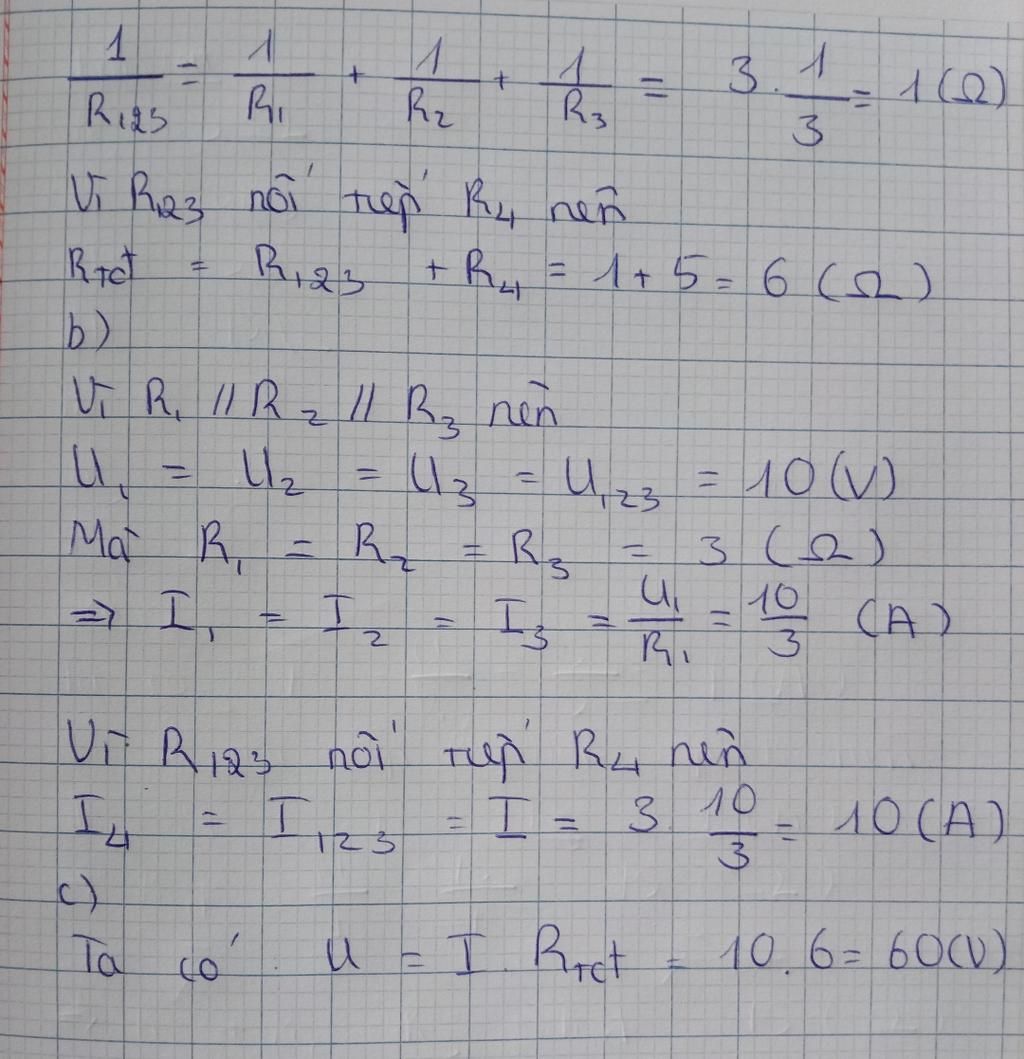 1/R₁₂₃ = 1/R₁ + 1/R₂ + 1/R₃ = 3 . 1/3 = 1 (Ω)
Vì R₁₂₃ nối tiếp R₄ nên
Rtđ = R₁₂₃ + R₄ = 1 + 5 = 6 (Ω)
b)
Vì R₁ // R₂ // R₃ nên
U₁ = U₂ = U₃ = U₁₂₃ = 10 (V)
Mà R₁ = R₂ = R₃ = 3 (Ω)
=> I₁ = I₂ = I₃ = U₁/R₁ = 10/3 (A)
Vì R₁₂₃ nối tiếp R₄ nên
I₄ = I₁₂₃ = I = 3 10/3 = 10 (A)
c)
Ta có U = I . Rtđ = 10 . 6 = 60 (V)